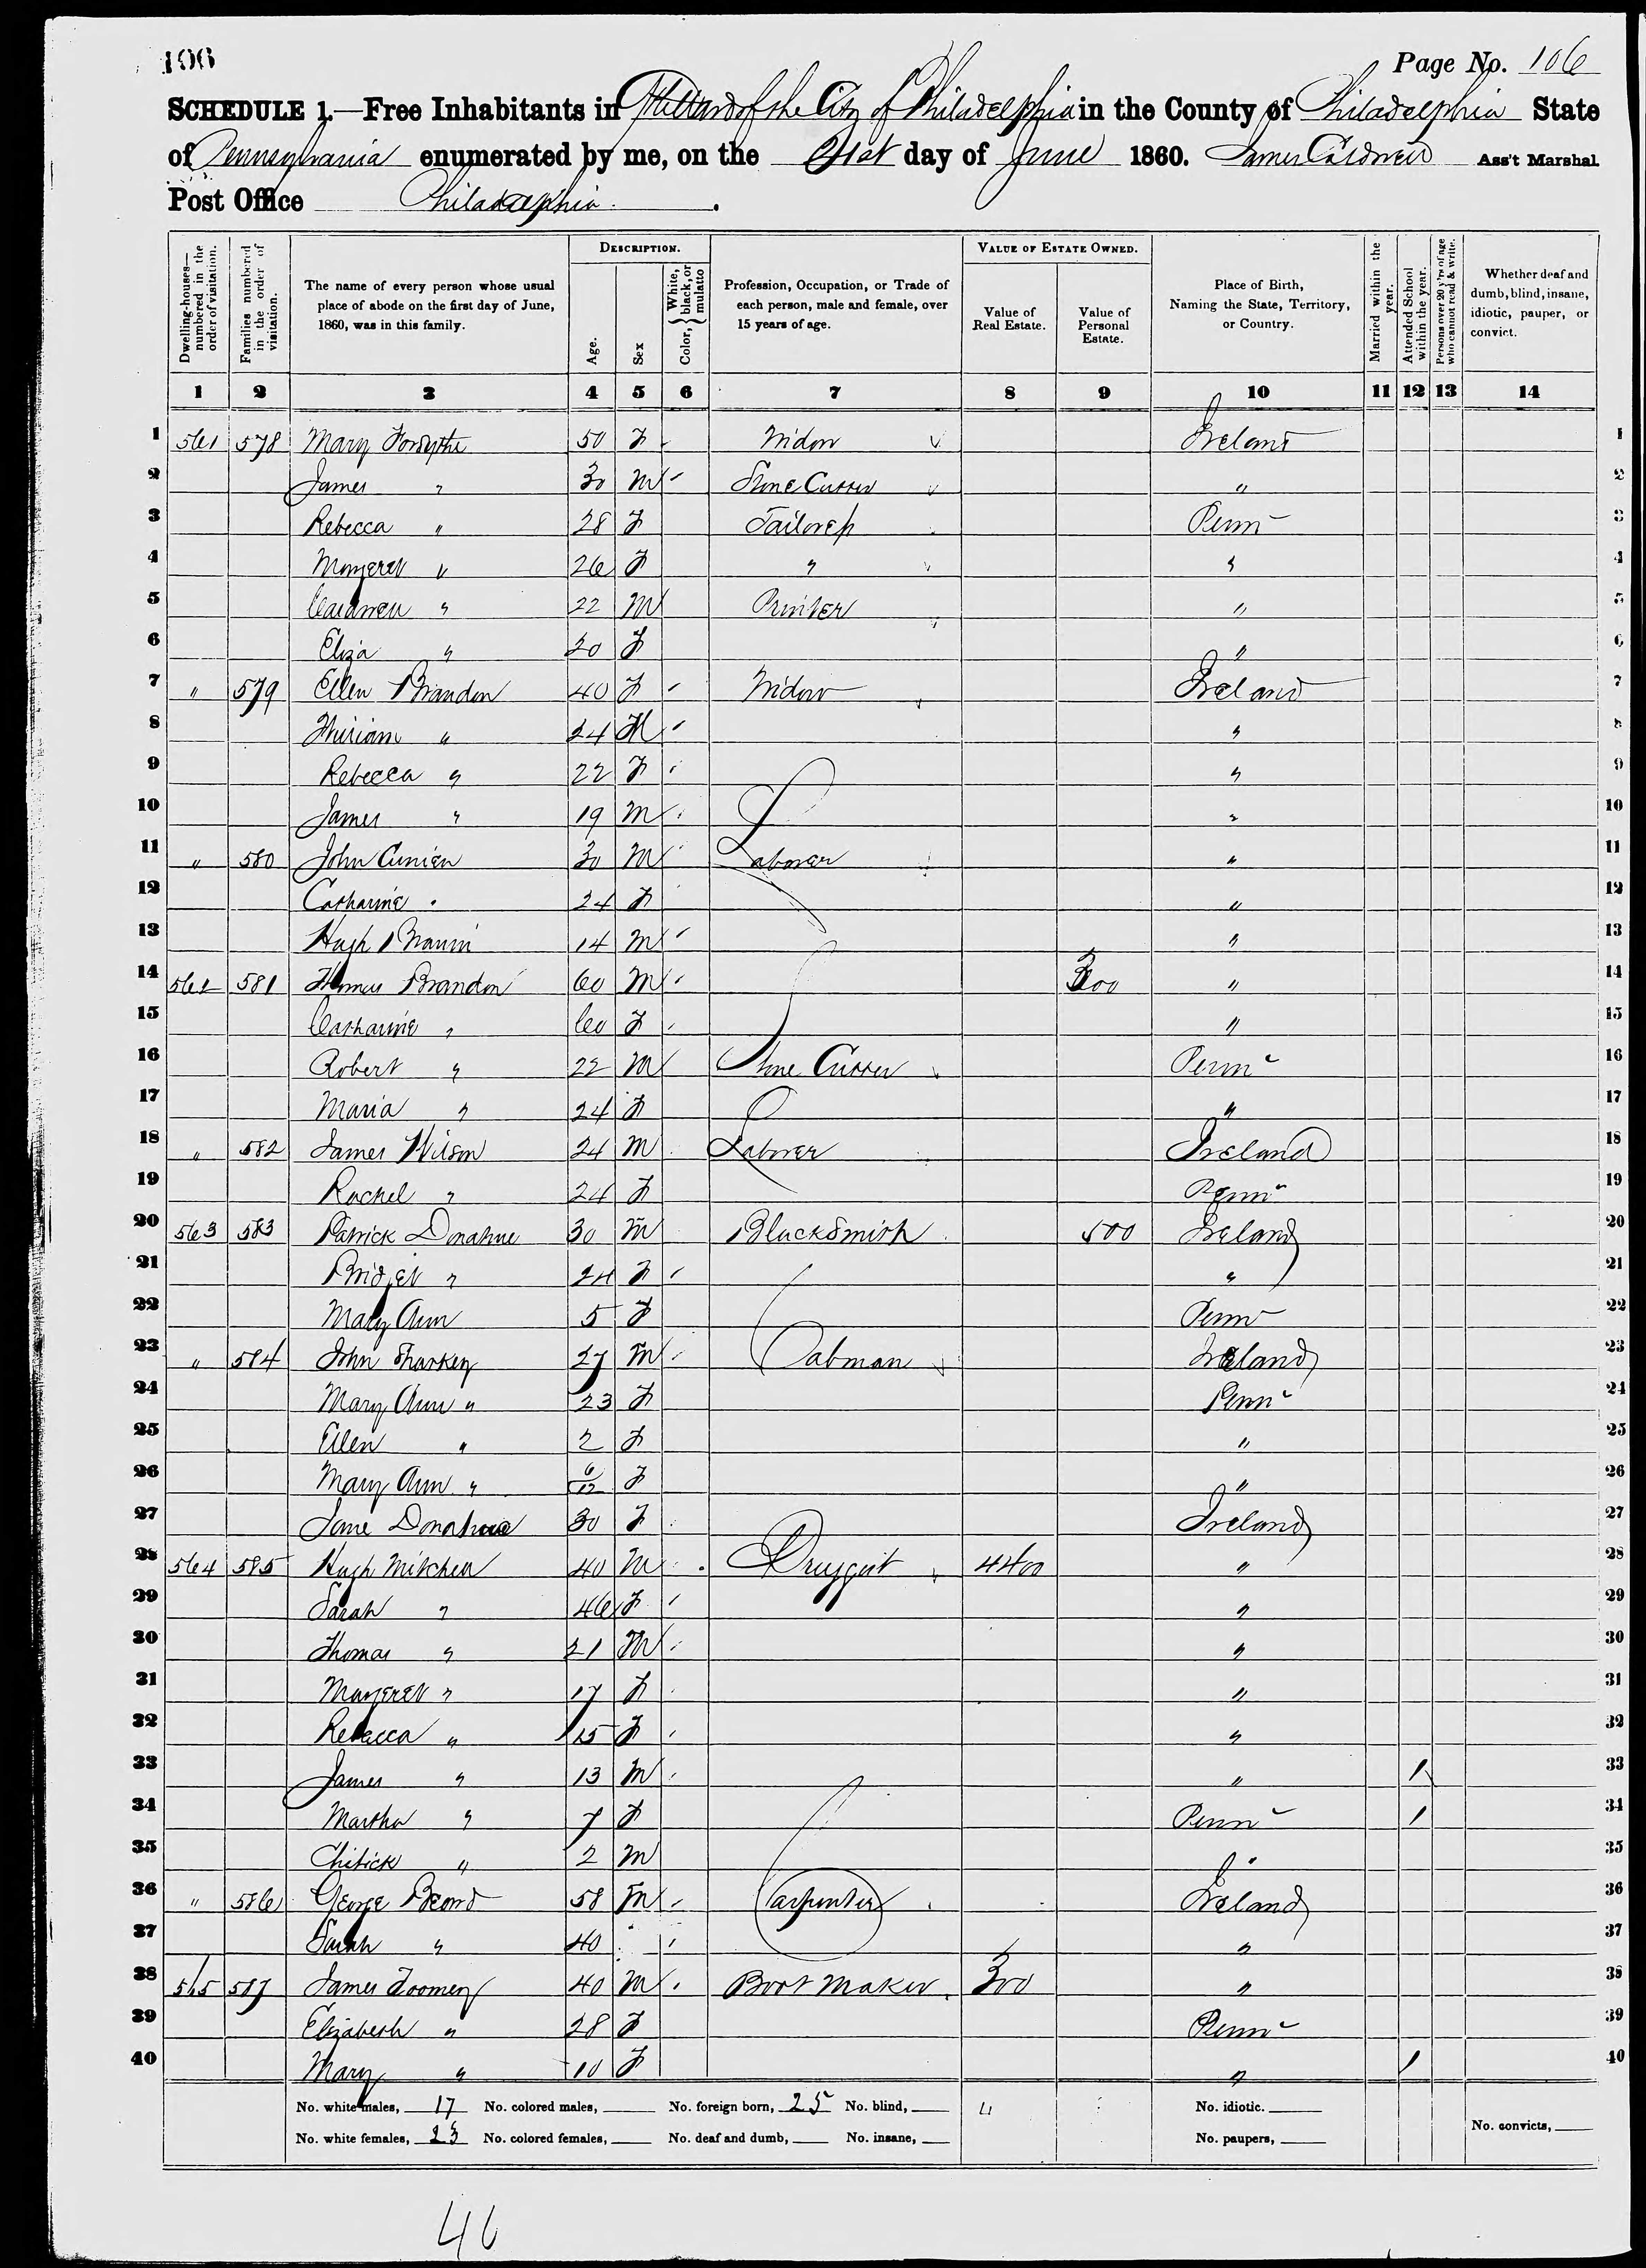 106
Page No. 106
SCHEDULE 1.—Free Inhabitants in 7th Ward of the City of Philadelphia in the County of Philadelphia State
of Pennsylvania enumerated by me, on the 21st day of June 1860. James Caldwell Ass't Marshal
Post Office Philadelphia.
Dwelling-houses—numbered in the order of visitation. Families numbered in the order of visitation. The name of every person whose usual place of abode on the first day of June, 1860, was in this family. DESCRIPTION. Age. Sex Color, { White, black, or mulatto Profession, Occupation, or Trade of each person, male and female, over 15 years of age. VALUE OF ESTATE OWNED. Value of Real Estate. Value of Personal Estate. Place of Birth, Naming the State, Territory, or Country. Married within the year. Attended School within the year. Persons over 20 y'rs of age who cannot read & write. Whether deaf and dumb, blind, insane, idiotic, pauper, or convict.
1 2 3 4 5 6 7 8 9 10 11 12 13 14
1 561 578 Mary Forsythe 50 F Widow Ireland 1
2 James " 30 M Stone Cutter " 2
3 Rebecca " 28 F Tailoress Penn 3
4 Margeret " 26 F " " 4
5 " 22 M Printer " 5
6 Eliza " 20 F " 6
7 " 579 Ellen Brandon 40 F Widow Ireland 7
8 William " 24 M " 8
9 Rebecca " 22 F " 9
10 James " 19 M " 10
11 " 580 John 30 M Laborer " 11
12 Catharine " 24 F " 12
13 Hugh 14 M " 13
14 562 581 Thomas Brandon 60 M 300 " 14
15 Catharine " 60 F " 15
16 Robert " 22 M Stone Cutter Penn 16
17 Maria " 24 F " 17
18 " 582 James Wilson 24 M Laborer Ireland 18
19 Rachel " 24 F Penn 19
20 563 583 Patrick Donahue 30 M BlackSmith 500 Ireland 20
21 Bridget " 24 F " 21
22 Mary Ann 5 F Penn 22
23 " 584 John Sharkey 27 M Cabman Ireland 23
24 Mary Ann " 23 F Penn 24
25 Ellen " 2 F " 25
26 Mary Ann " 6/12 F " 26
27 Jane Donahue 30 F Ireland 27
28 564 585 Hugh Mitchell 40 M Druggist 4400 " 28
29 Sarah " 46 F " 29
30 Thomas " 21 M " 30
31 Margeret " 17 F " 31
32 Rebecca " 15 F " 32
33 James " 13 M " 1 33
34 Martha " 7 F Penn 1 34
35 Chitick " 2 M " 35
36 " 586 George Beard 58 M Carpenter Ireland 36
37 Sarah " 40 " 37
38 565 587 James Toomey 40 M Boot Maker 300 " 38
39 Elizabeth " 28 F Penn 39
40 Mary " 10 F " 1 40
No. white males, 17 No. colored males, No. foreign born, 25 No. blind, No. idiotic.
No. white females, 23 No. colored females, No. deaf and dumb, No. insane, No. paupers, No. convicts,